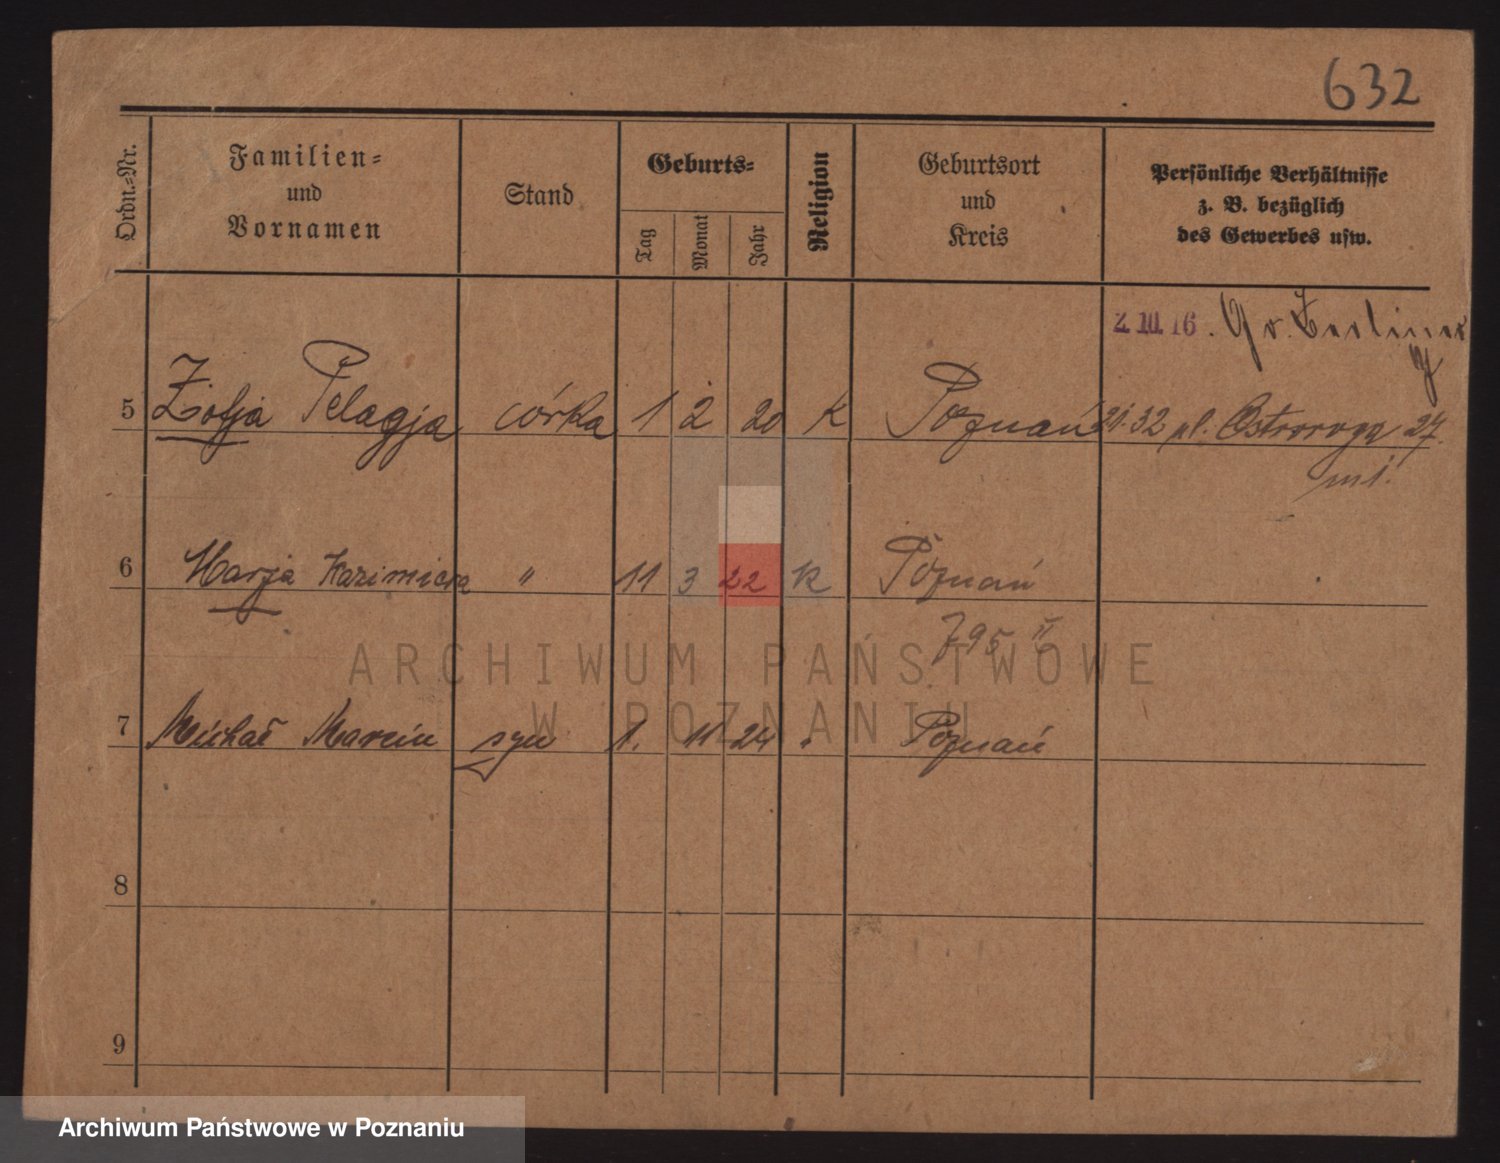 632
Ordn.-Nr.
Familien-
und
Vornamen
Stand
Geburts-
Tag
Monat
Jahr
Religion
Geburtsort
und
Kreis
Persönliche Verhältnisse
z. B. bezüglich
des Gewerbes usw.
2.III.16. Gr. Berliner
5 Zofja Pelagja córka 1 2 20 k Poznań 32 pl. Ostroroga 27.
6 Marja Kazimiera " 11 3 22 k Poznań
795 II
7 Michał Marcin syn 1. 11 24 Poznań
8
9
ARCHIWUM PAŃSTWOWE
W POZNANIU
Archiwum Państwowe w Poznaniu